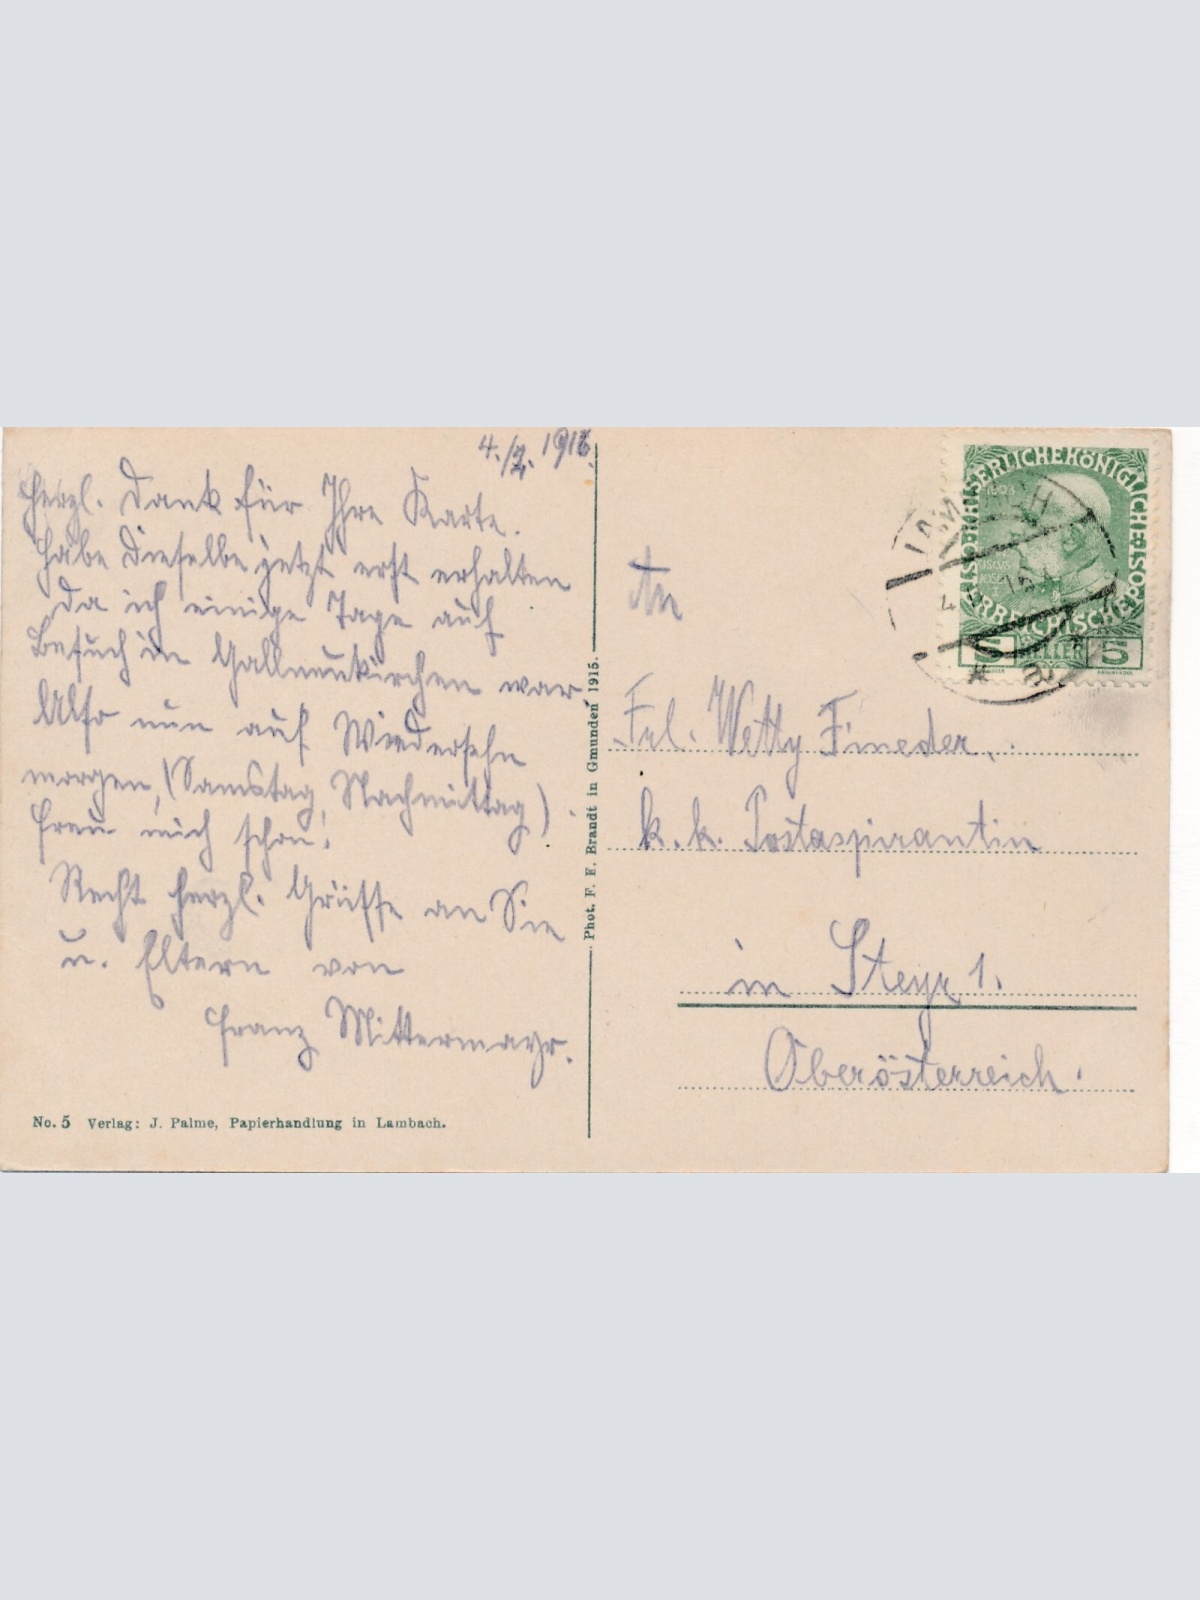 4./2. 1916.
Herzl. Dank für Ihre Karte.
Habe dieselbe jetzt erst erhalten
da ich einige Tage auf
Besuch in Gallneukirchen war.
Also nun auf Wiedersehn
morgen, (Samstag Nachmittag)
freu mich schon!
Recht herzl. Grüsse an Sie
u. Eltern von
Franz Mittermayr.
No. 5 Verlag: J. Palme, Papierhandlung in Lambach.
Phot. F. E. Brandt in Gmunden 1915.
KAISERLICHE KÖNIGLICHE ÖSTERREICHISCHE POST
5 HELLER 5
An
Frl. Wetty Fineder.
k. k. Postaspirantin
in Steyr 1.
Oberösterreich.